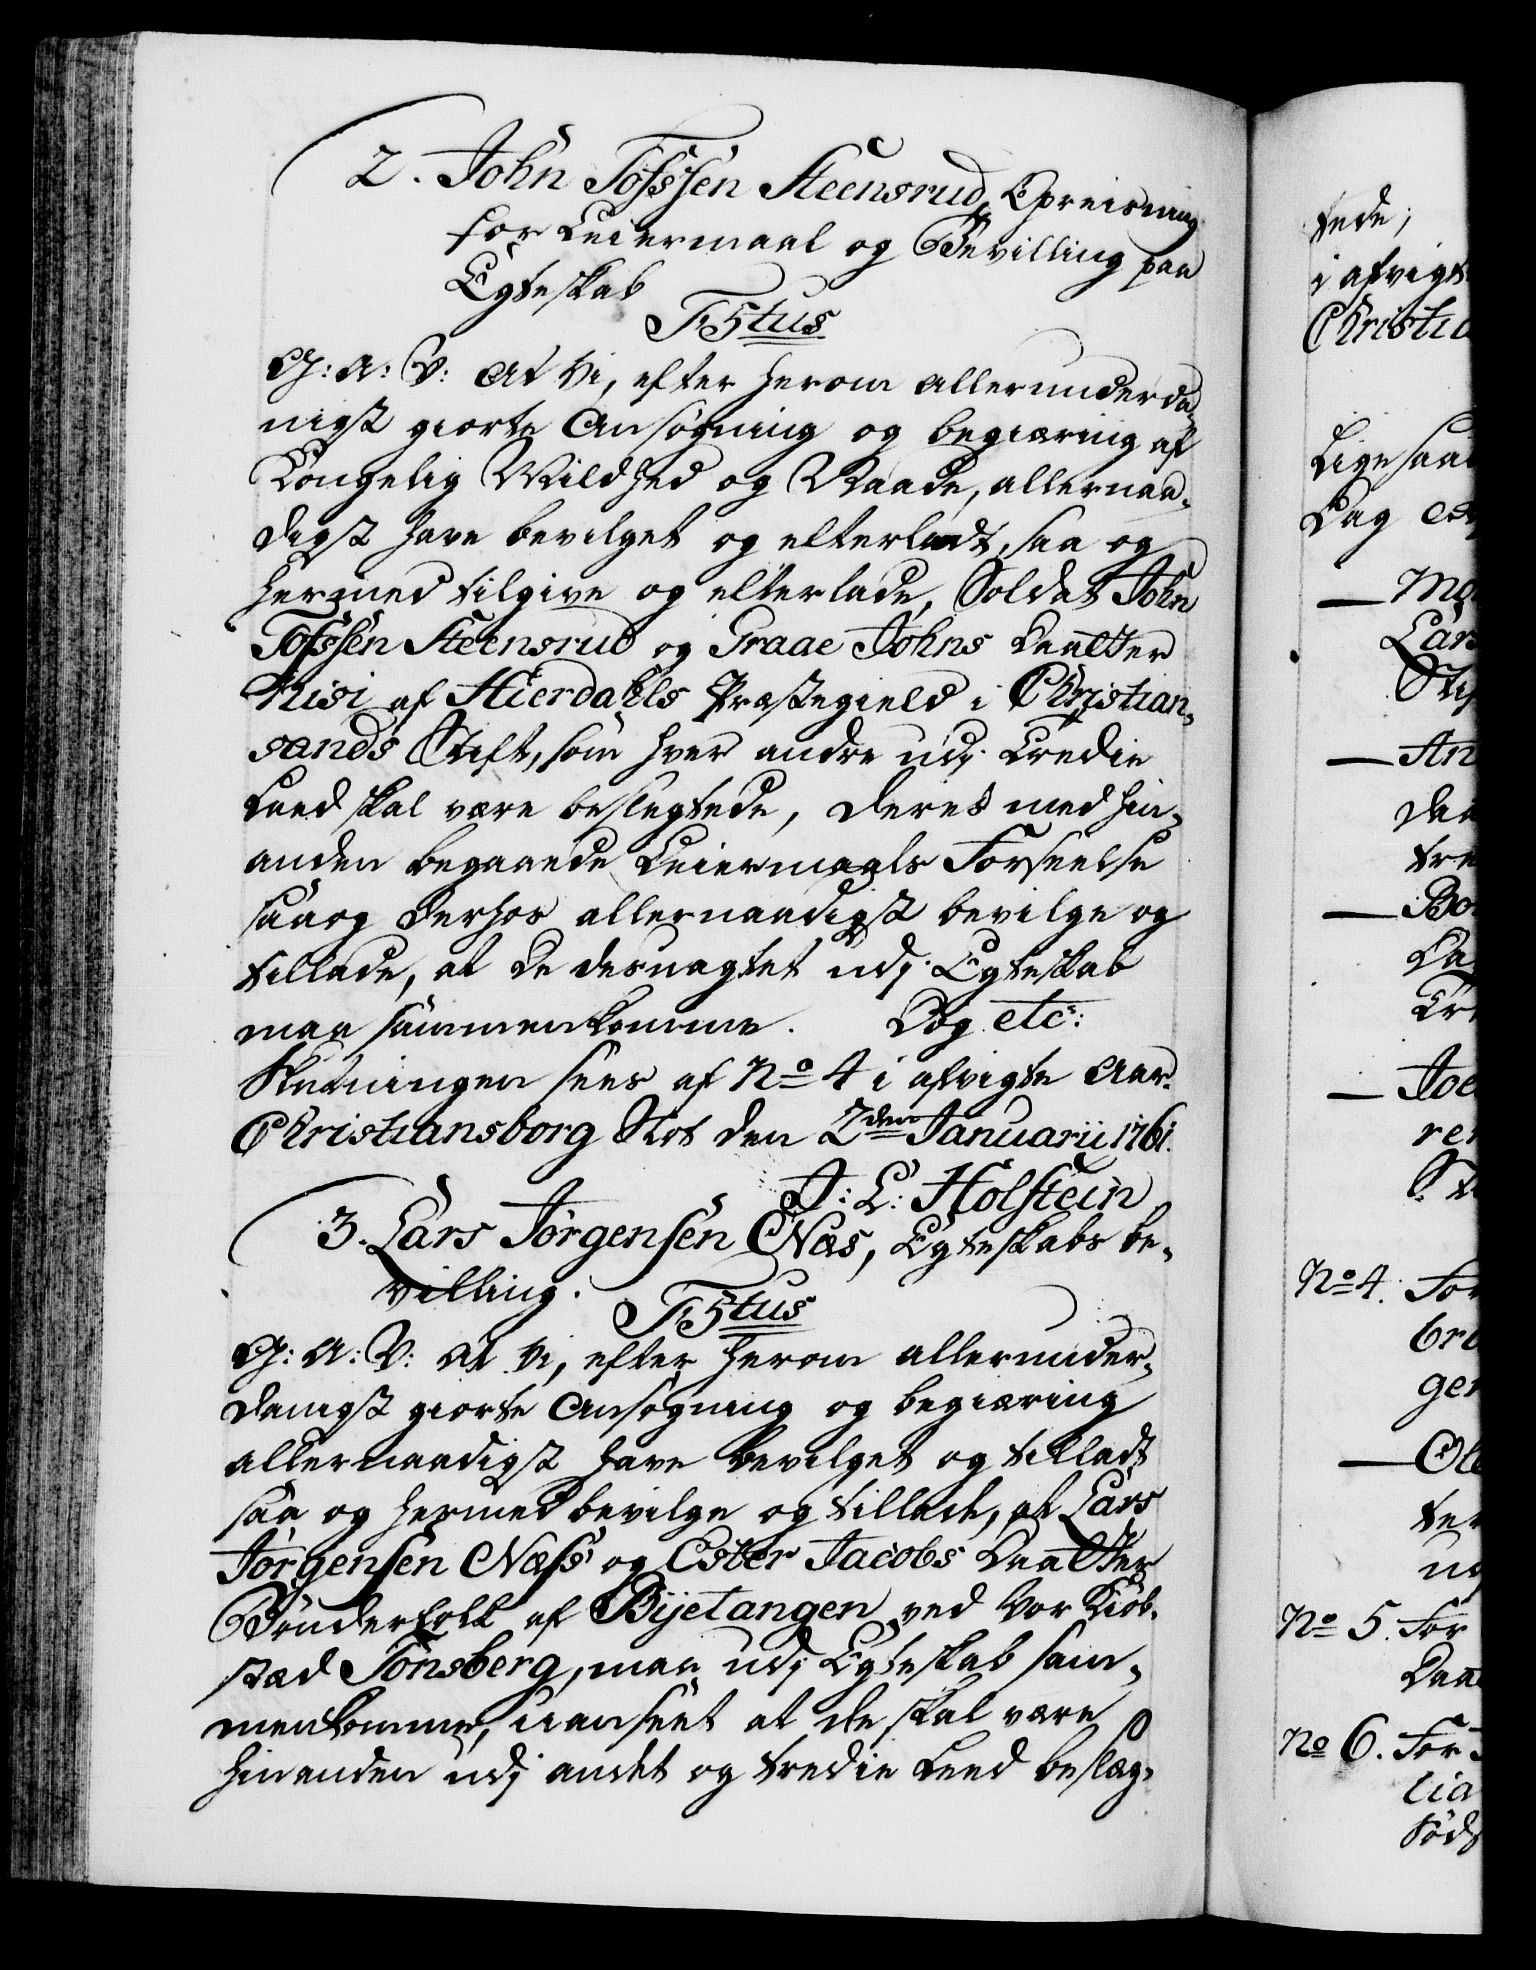 2. John Tofssen Steensrud, Opreisning
for Leiermaal og Bevilling paa
Egteskab
F5tus
G: A: V: At Vi, efter herom allerunderda-
nigst giorte Ansøgning og begiæring af
Kongelig Mildhed og Naade, allernaa-
digst have bevilget og efterladt, saa og
hermed tilgive og efterlade, Soldat John
Tofssen Steensrud og Graae Johns Daatter
Nisi af Hierdahls Præstegield i Christian-
sands Stift, som hver andre udj tredie
Leed skal være beslegtede, deres med hin-
anden begaaede Leiermaals Forseelse
saa og derhos allernaadigst bevilge og
tillade, at de desuagtet udj Egteskab
maa sammenkomme. Dog etc:
Slutningen sees af No 4 i afvigte Aar.
Christiansborg Slot den 2den Januarii 1761.
J: L: Holstein
3. Lars Jørgensen Næs, Egteskabs be-
villing.
F5tus
G: A: V: At Vi, efter herom allerunder-
danigst giorte Ansøgning og begiæring
allernaadigst have bevilget og tilladt
saa og hermed bevilge og tillade, at Lars
Jørgensen Næss og Ester Jacobs Daatter
Bønderfolk af Bijetangen ved Vor Kiøb-
stæd Tønsberg, maa udj Egteskab sam-
menkomme, uanseet at de skal være
hinanden udj andet og tredie Leed beslæg-
tede;
i afvigt
Christia
Ligesaa
Dag
Lars
An
tre
Bo
Joe
No 4. For
bro
ger
Ole
ter
No 5. For
Daa
No 6. For
lia